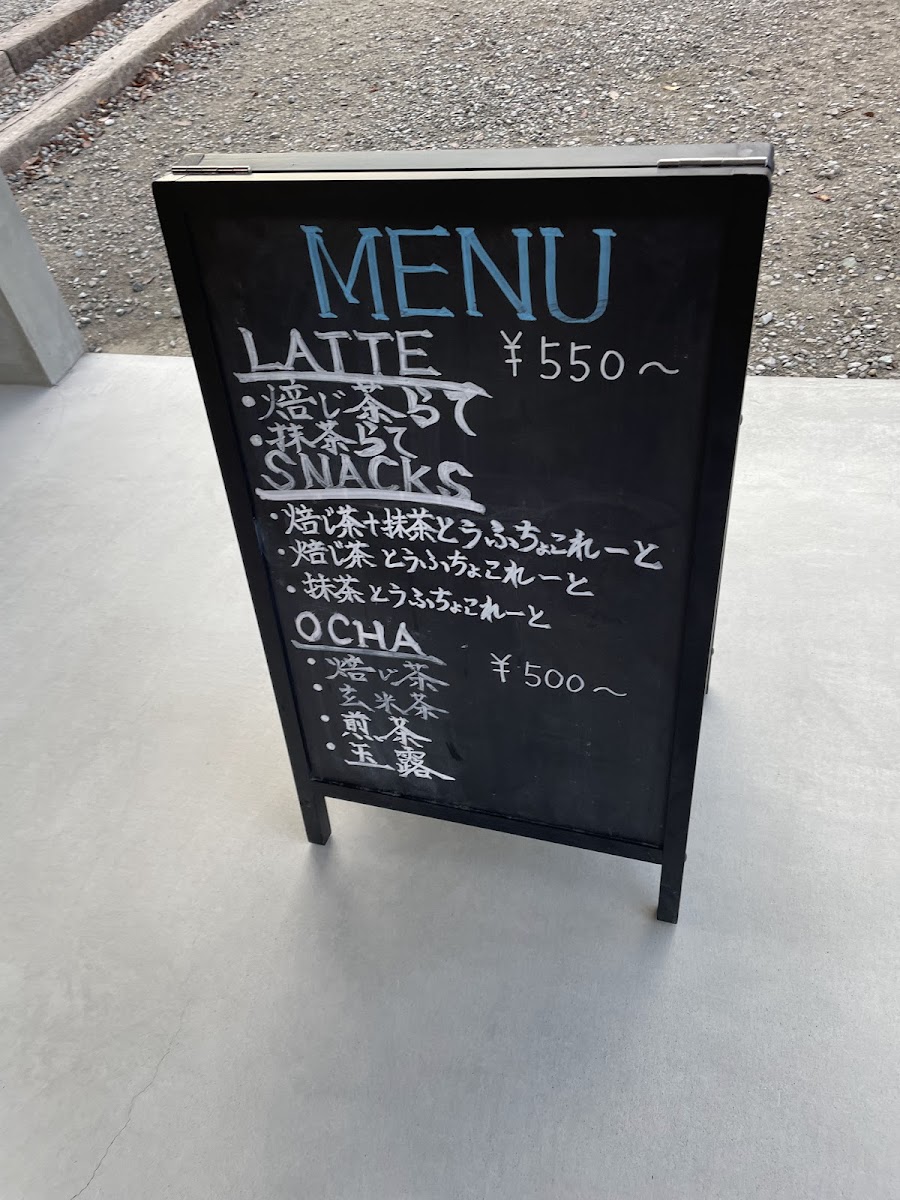 MENU
LATTE ¥550〜
・焙じ茶らて
・抹茶らて
SNACKS
・焙じ茶+抹茶とうふちょこれーと
・焙じ茶とうふちょこれーと
・抹茶とうふちょこれーと
OCHA
・焙じ茶 ¥500〜
・玄米茶
・煎茶
・玉露